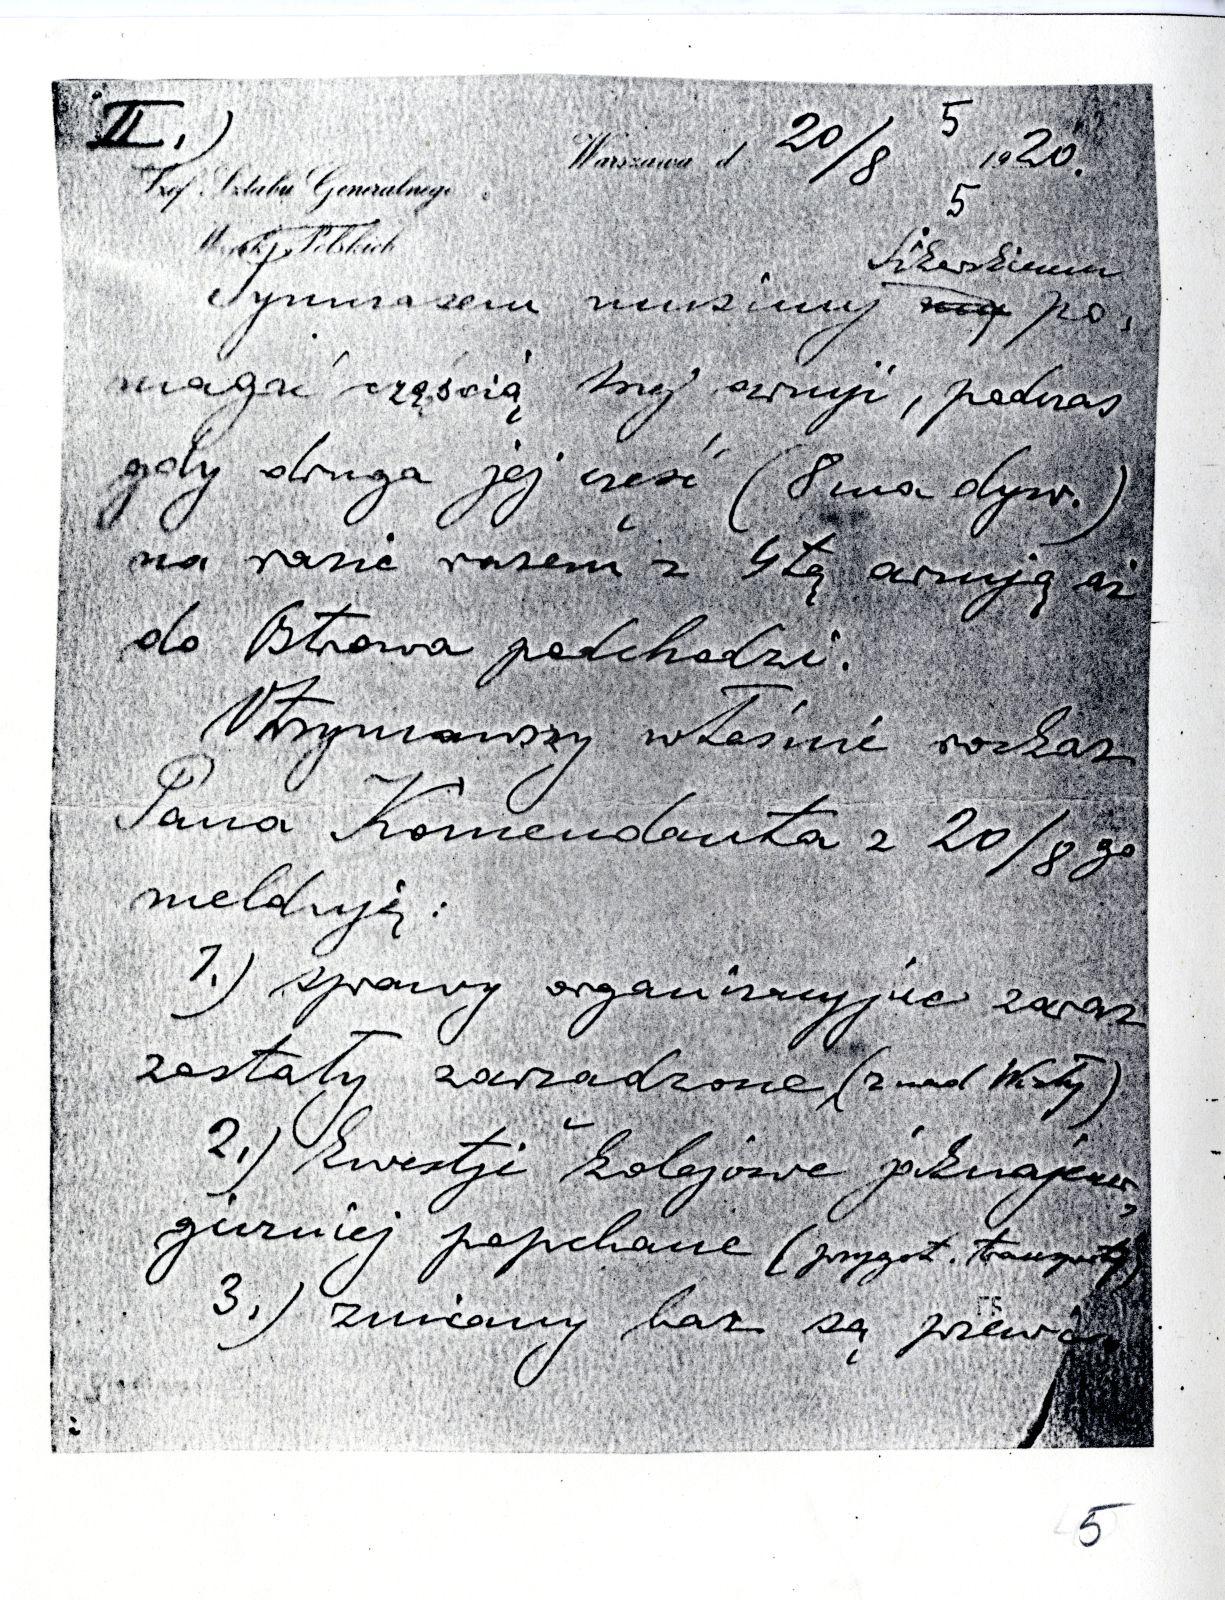 II.)
5
Warszawa d. 20/8 1920.
Szef Sztabu Generalnego
5
Wojsk Polskich
Sikorskiemu
Tymrazem musimy po-
magać częścią tej armji, podczas
gdy druga jej część (8ma dyw.)
na razie razem z 4tą armją aż
do Ostrowa podchodzi.
Otrzymawszy właśnie rozkaz
Pana Komendanta z 20/8 go
melduję:
1.) sprawy organizacyjne zaraz
zostały zarządzone (z nad Wisły)
2.) kwestje kolejowe jaknajener-
giczniej popchane (przygot. transporty)
3.) zmiany baz są przewi-
5